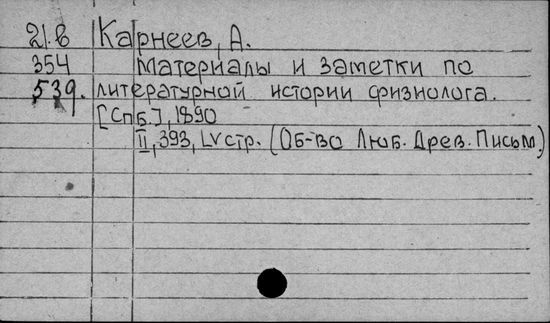 21.в Карнеев, А.
354 Материалы и заметки по
539. литературной истории физиолога.
[Спб.], 1890
II, 393, LV стр. (Об-во Люб. Древ. Письм.)